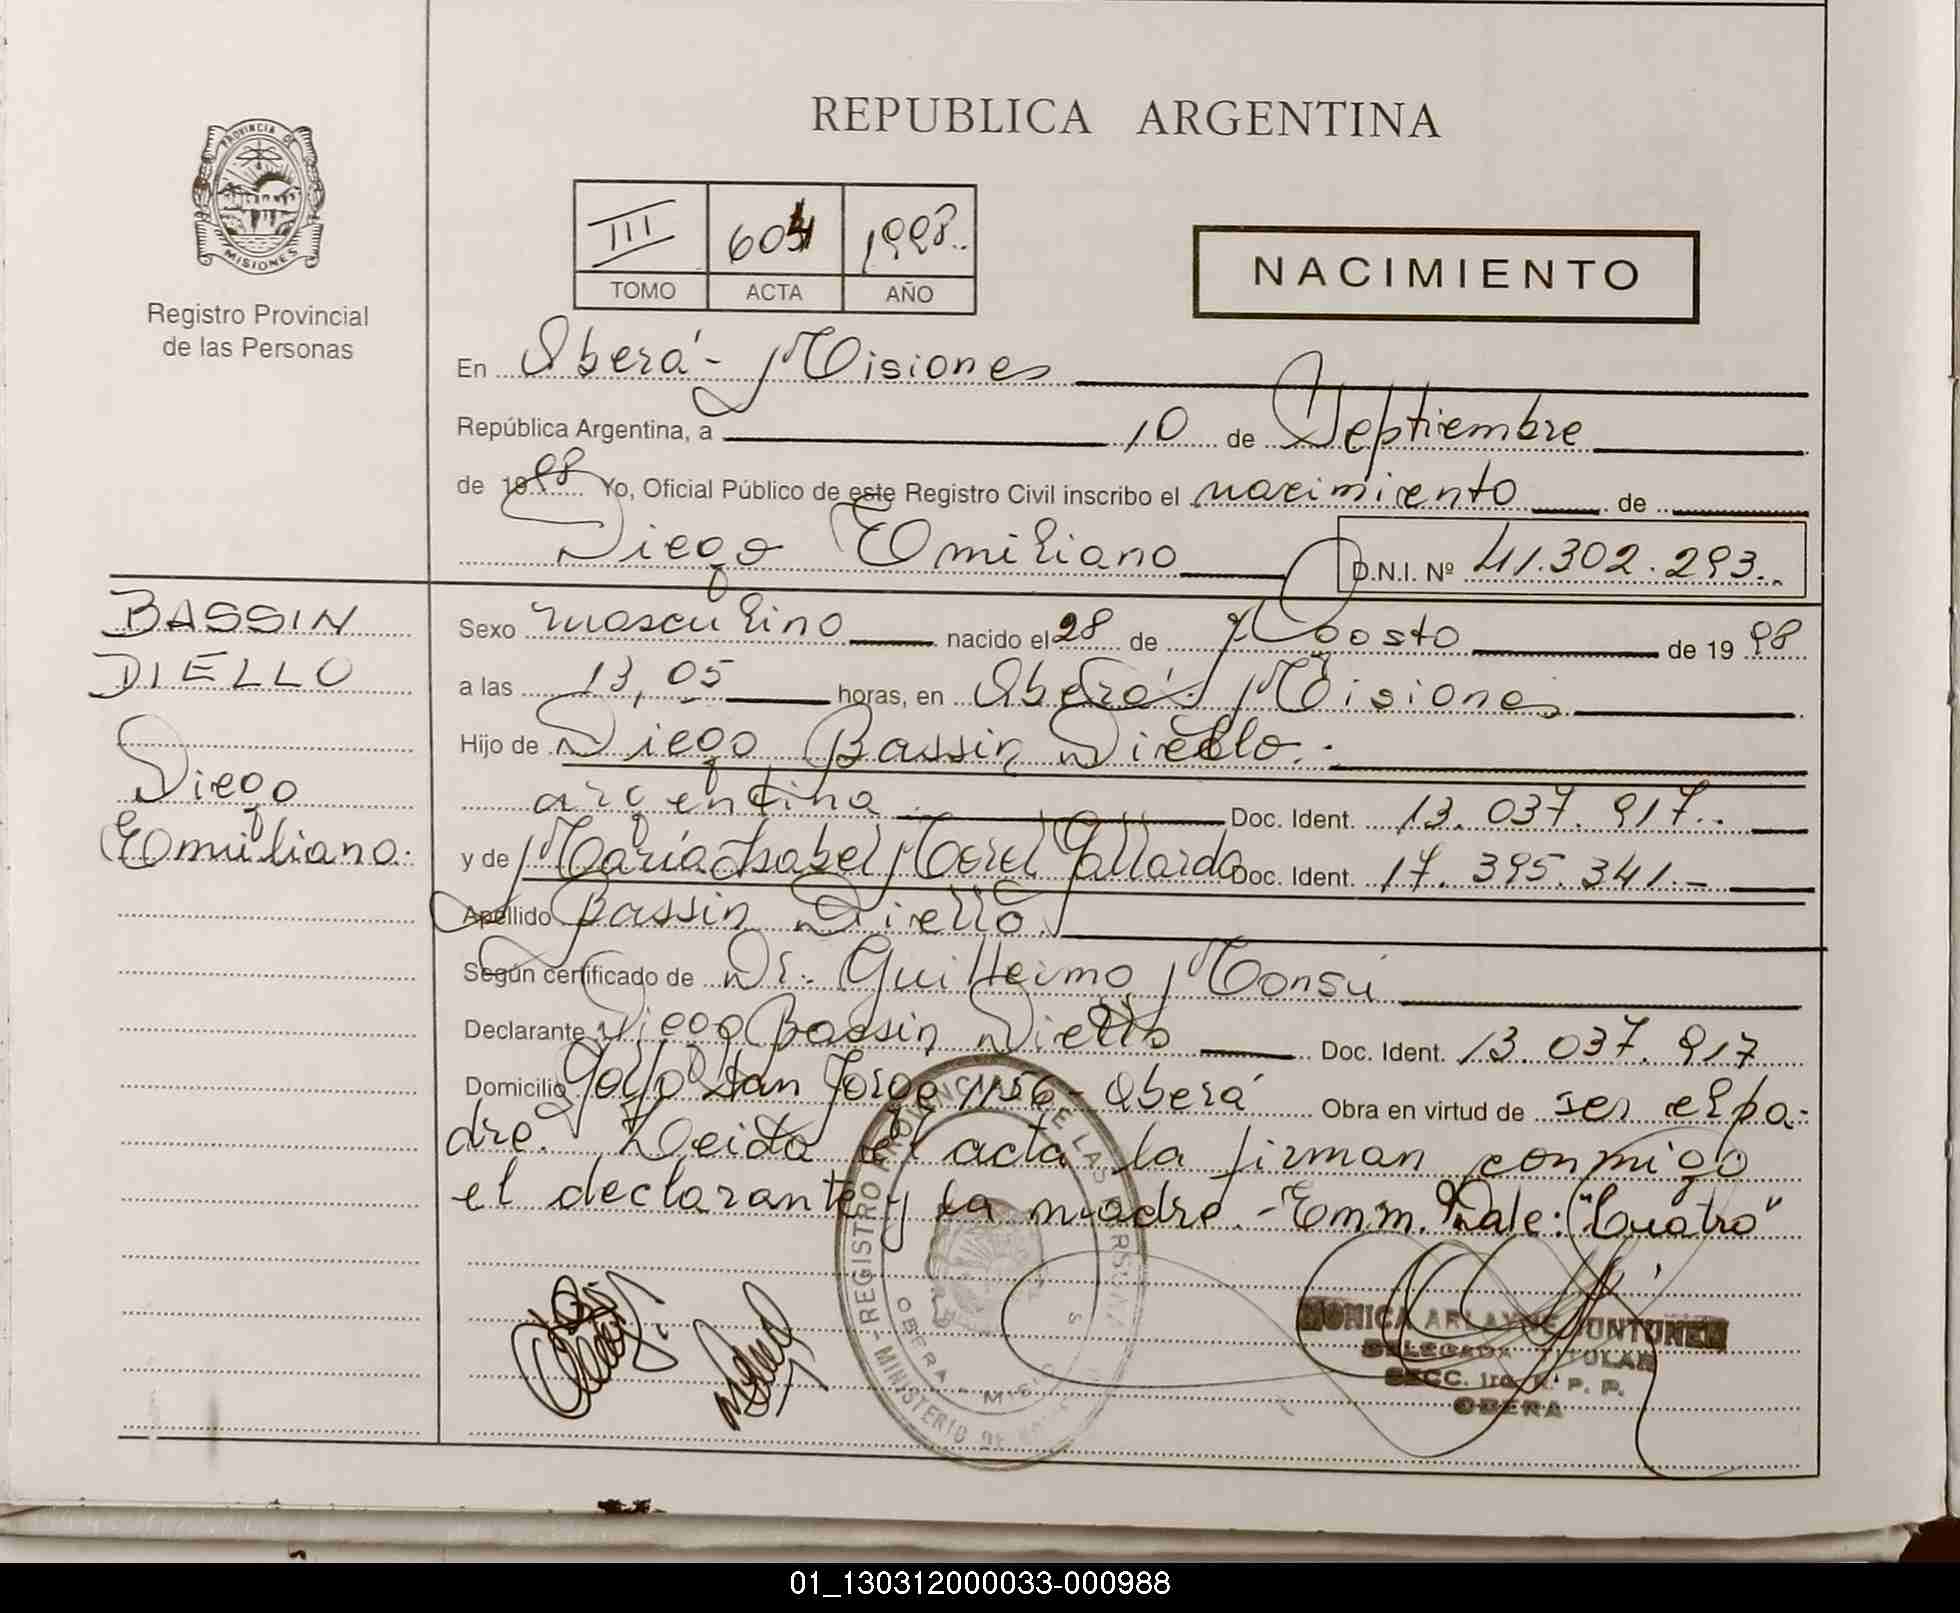 REPUBLICA ARGENTINA
PROVINCIA DE
MISIONES
Registro Provincial
de las Personas
III 604 1998..
TOMO ACTA AÑO
NACIMIENTO
En Oberá - Misiones
República Argentina, a 10 de Septiembre
de 1998 Yo, Oficial Público de este Registro Civil inscribo el nacimiento de
Diego Emiliano D.N.I. Nº 41.302.293..
BASSIN
DIELLO
Diego
Emiliano.
Sexo masculino nacido el 28 de Agosto de 1998
a las 13,05 horas, en Oberá - Misiones
Hijo de Diego Bassin Diello.-
argentina Doc. Ident. 13.037.917..
y de María Isabel Morel Gallardo Doc. Ident. 17.395.341.-
Apellido Bassin Diello
Según certificado de Dr. Guillermo Monsú
Declarante Diego Bassin Diello Doc. Ident. 13.037.917
Domicilio Golfo San Jorge 1156 - Oberá Obra en virtud de ser el pa-
dre. Leida el acta la firman conmigo
el declarante y la madre.- Enm. Vale: "Cuatro"
REGISTRO PROVINCIAL DE LAS PERSONAS
MINISTERIO DE
OBERA - MISIONES
MONICA ARLAYNE JUNTUNEN
DELEGADA TITULAR
SECC. 1ra. R. P. P.
OBERA
01_130312000033-000988